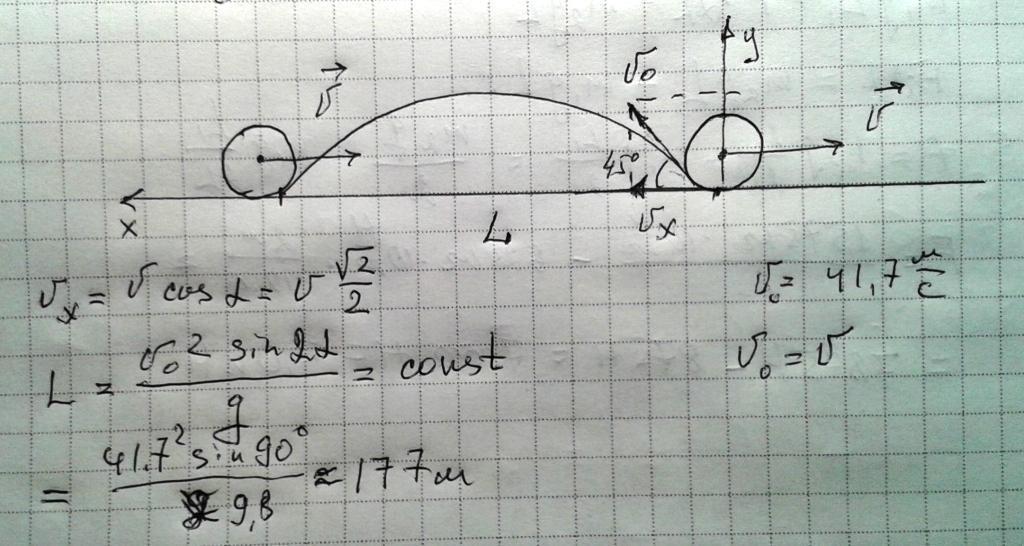 y
v⃗ v₀ v⃗
45°
x L vₓ
vₓ = v cos α = v √2/2 v₀ = 41,7 м/с
L = v₀² sin 2α / g = const v₀ = v
= 41.7² sin 90° / 9,8 ≈ 177 м